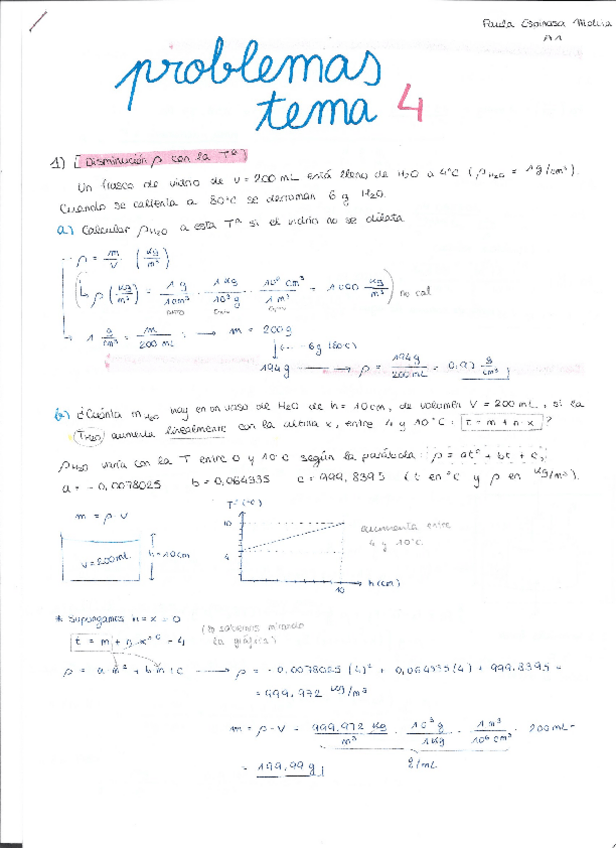 Paula Espinosa Molina
problemas
tema 4
1) [Disminución ρ con la Tª]
Un frasco de vidrio de V = 200 mL está lleno de H₂O a 4°C (ρ H₂O = 1g/cm³).
Cuando se calienta a 80°C se derraman 6 g H₂O.
a) Calcular ρ H₂O a esta Tª si el vidrio no se dilata
ρ = m/V (kg/m³)
ρ (kg/m³) = 1 g/1 cm³ · 1 kg/10³ g · 10⁶ cm³/1 m³ = 1000 kg/m³ no cal
1 g/cm³ = m/200 mL ; → m = 200 g
- 6g (80°C)
194g → ρ = 194g/200mL = 0,97 g/cm³
¿Cuánta m H₂O hay en un vaso de H₂O de h = 10cm, de volumen V = 200 mL, si la
T H₂O aumenta linealmente con la altura x, entre 4 y 10°C : t = m + n · x ?
ρ H₂O varía con la T entre 0 y 10°C según la parábola: ρ = at² + bt + c,
a = - 0,0078025 b = 0,064335 c = 999,8395 (t en °C y ρ en kg/m³).
m = ρ · V
V = 200mL
h = 10cm
Tª (°C)
10
4
10
h (cm)
aumenta entre
4 y 10°C.
* Supongamos h = x = 0
(lo sabemos mirando
la gráfica)
t = m + n · x = 4
ρ = a m² + b m + c → ρ = - 0,0078025 (4)² + 0,064335(4) + 999,8395 =
= 999,972 kg/m³
m = ρ · V = 999,972 kg/m³ · 10³ g/1 kg · 1 m³/10⁶ cm³ · 200 mL =
= 199,99 g